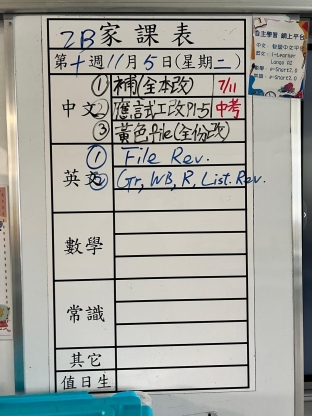 2B家課表
第十週11月5日(星期二)
中文
①補(全本改) 7/11
②應試工改P1-5 中考
③黃色file(全份改)
英文
① File Rev.
② Gr, WB, R, List. Rev.
數學
常識
其它
值日生
自主學習 網上平台